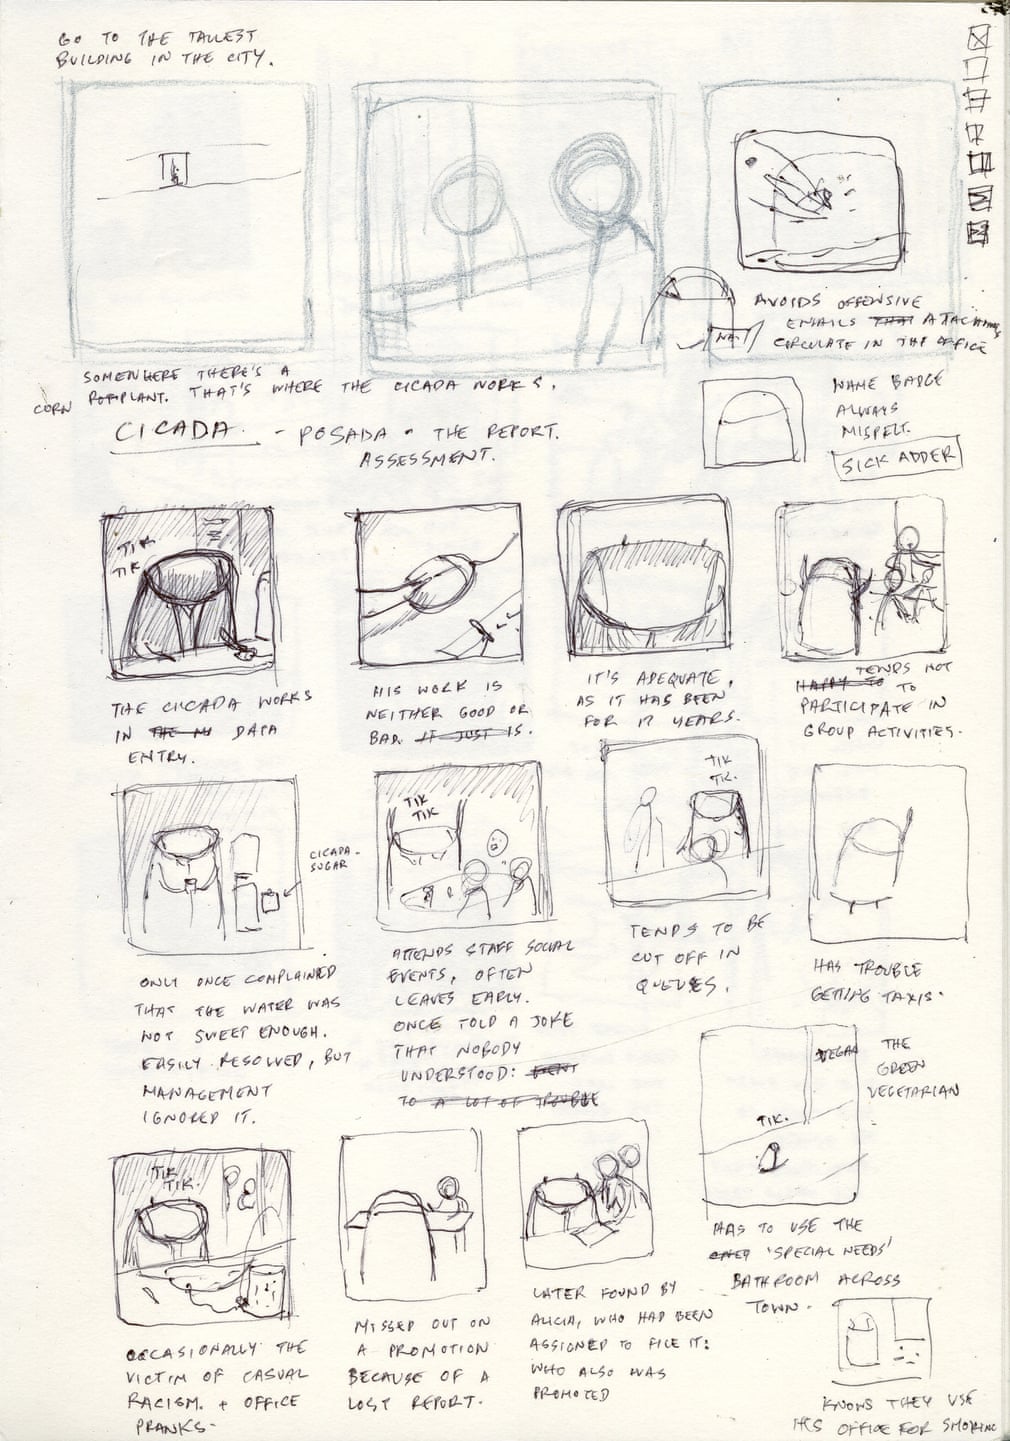 GO TO THE TALLEST
BUILDING IN THE CITY.
AVOIDS OFFENSIVE
EMAILS THAT ATTACHMENTS
CIRCULATE IN THE OFFICE
SOMEWHERE THERE'S A
CORN POTPLANT. THAT'S WHERE THE CICADA WORKS.
NAME BADGE
ALWAYS
MISPELT.
SICK ADDER
CICADA - POSADA - THE REPORT.
ASSESSMENT.
TIK
TIK
THE CICADA WORKS
IN DATA
ENTRY.
HIS WORK IS
NEITHER GOOD OR
BAD. IT JUST IS.
IT'S ADEQUATE,
AS IT HAS BEEN
FOR 17 YEARS.
TENDS NOT
HAPPY TO TO
PARTICIPATE IN
GROUP ACTIVITIES.
CICADA-
SUGAR
TIK
TIK
TIK
TIK.
ONLY ONCE COMPLAINED
THAT THE WATER WAS
NOT SWEET ENOUGH.
EASILY RESOLVED, BUT
MANAGEMENT
IGNORED IT.
ATTENDS STAFF SOCIAL
EVENTS, OFTEN
LEAVES EARLY.
ONCE TOLD A JOKE
THAT NOBODY
UNDERSTOOD:
TO A LOT OF TROUBLE
TENDS TO BE
CUT OFF IN
QUEUES.
HAS TROUBLE
GETTING TAXIS.
VEGAN
THE
GREEN
VEGETARIAN
TIK.
HAS TO USE THE
'SPECIAL NEEDS'
BATHROOM ACROSS
TOWN.
TIK
TIK.
OCCASIONALLY THE
VICTIM OF CASUAL
RACISM. + OFFICE
PRANKS-
MISSED OUT ON
A PROMOTION
BECAUSE OF A
LOST REPORT.
LATER FOUND BY
ALICIA, WHO HAD BEEN
ASSIGNED TO FILE IT:
WHO ALSO WAS
PROMOTED
KNOWS THEY USE
HIS OFFICE FOR SMOKING